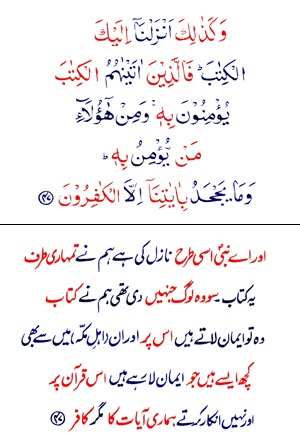 وَكَذٰلِكَ اَنْزَلْنَاۤ اِلَيْكَ
الْكِتٰبَ ؕ فَالَّذِيْنَ اٰتَيْنٰهُمُ الْكِتٰبَ
يُؤْمِنُوْنَ بِهٖ ۚ وَمِنْ هٰۤؤُلَآءِ
مَنْ يُّؤْمِنُ بِهٖ ؕ
وَمَا يَجْحَدُ بِاٰيٰتِنَاۤ اِلَّا الْكٰفِرُوْنَ ﴿۴۷﴾
اور اے نبیؐ اسی طرح نازل کی ہے ہم نے تمہاری طرف
یہ کتاب۔ سو وہ لوگ جنہیں دی تھی ہم نے کتاب
وہ تو ایمان لاتے ہیں اس پر اور ان (اہلِ مکہ) میں سے بھی
کچھ ایسے ہیں جو ایمان لا رہے ہیں اس قرآن پر
اور نہیں انکار کرتے ہماری آیات کا مگر کافر ﴿۴۷﴾